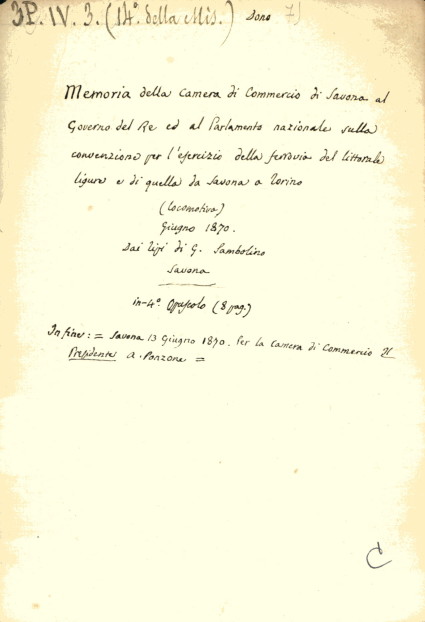 3P. IV. 3. (14ª della Mis.) Dono 7)
Memoria della Camera di Commercio di Savona al
Governo del Re ed al Parlamento nazionale sulla
convenzione per l'esercizio della ferrovia del littorale
ligure e di quella da Savona a Torino
(Locomotiva)
Giugno 1870.
Dai tipi di G. Sambolino
Savona
in-4º Opuscolo (8 pag.)
In fine: = Savona 13 Giugno 1870. Per la Camera di Commercio Il
Presidente A. Ponzone =
C